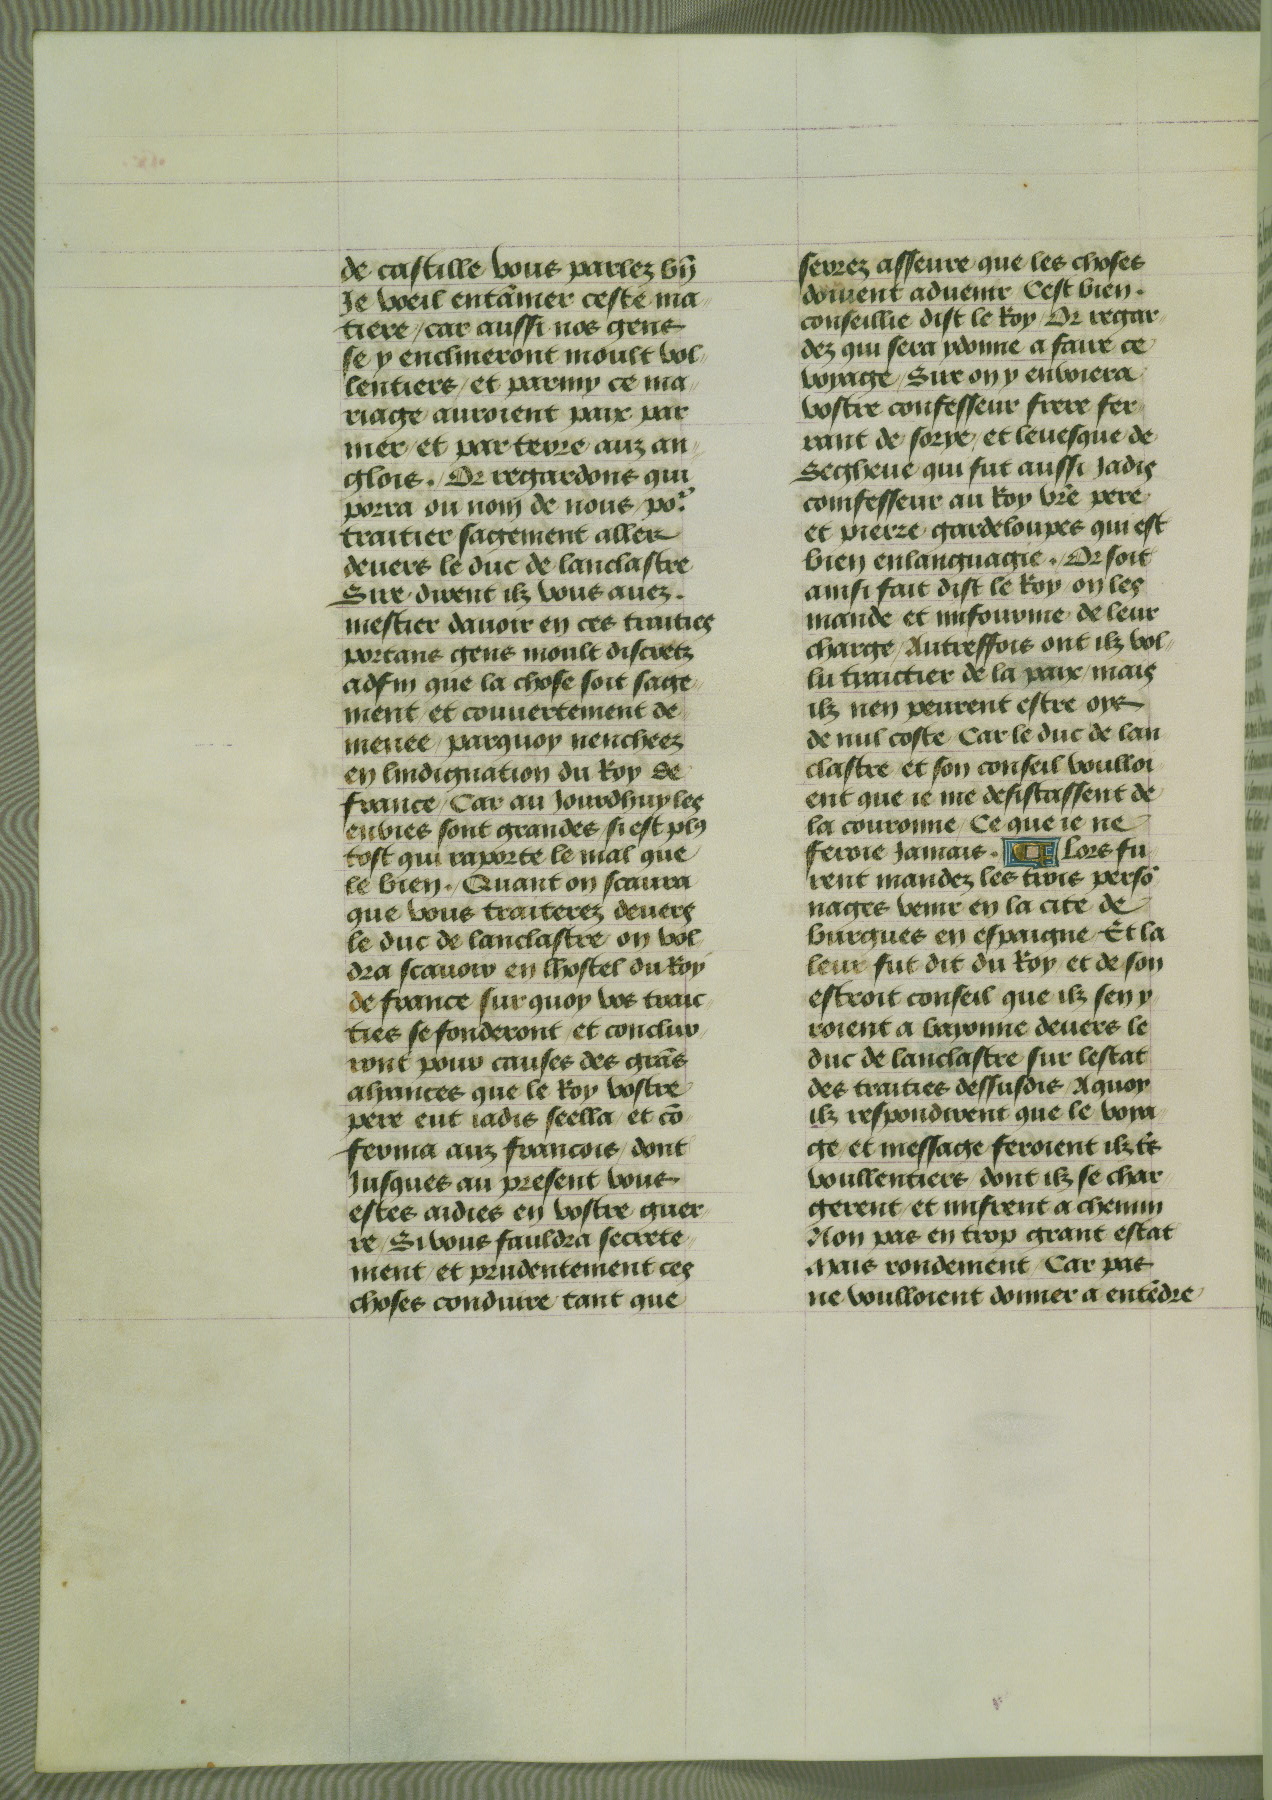 de castille vous parlez bn̄
Je voeil entāmer ceste ma
tiere / car aussi nos gens
se y enclineront moult vol
lentiers / et parmy ce ma
riage auroient paix par
mer / et par terre auz an
glois . Or regardons qui
porra ou nom de nous por
traitier sagement aller
deuers le duc de lanclastre
Sire dirent ilz vous auez .
mestier dauoir en ces traities
portans gens moult discretz
adfin que la chose soit sage
ment et couuertement de
menee / parquoy nencheez
en lindignation du Roy de
france / Car au Jourdhuy les
enuies sont grandes si est plus
tost qui raporte le mal que
le bien . Quant on scaura
que vous traiterez deuers
le duc de lanclastre on vol
dra scauoir en lhostel du Roy
de france sur quoy vos trait
ties se fonderont et conclur
ront pour causes des grās
aliances que le Roy vostre
pere eut iadis seella et cō
ferma auz francois / dont
Jusques au present vous
estes aidies en vostre guer
re / Si vous fauldra secrete
ment et prudentement ces
choses conduire tant que
serrez asseure que les choses
doiuent aduenir Cest bien .
conseillie dist le Roy / Or regar
dez qui sera ydonne a faire ce
voyage / Sire on y enuoiera
vostre confesseur frere fer
rant de sorye / et leuesque de
Segheue qui fut aussi Jadis
comfesseur au Roy vrē pere
et pierre gardeloupes qui est
bien enlanguagie . Or soit
ainsi fait dist le Roy on les
mande et imfourme de leur
charge / Autreffois ont ilz vol
lu traictier de la paix / mais
ilz nen peurent estre oys
de nul coste Car le duc de lan
clastre et son conseil voulloi
ent que ie me desistassent de
la couronne / Ce que ie ne
feroie Jamais . Lors fu
rent mandez les trois persō
nages venir en la cite de
burgues en espaigne / Et la
leur fut dit du Roy et de son
estroit conseil que ilz sen y
roient a bayonne deuers le
duc de lanclastre sur lestat
des traities dessusdis / A quoy
ilz respondirent que le voya
ge et message feroient ilz t̄s
voullentiers dont ilz se char
gerent et mifrent a chemin
Non pas en trop grant estat
Mais rondement / Car pas
ne voulloient donner a entēdre